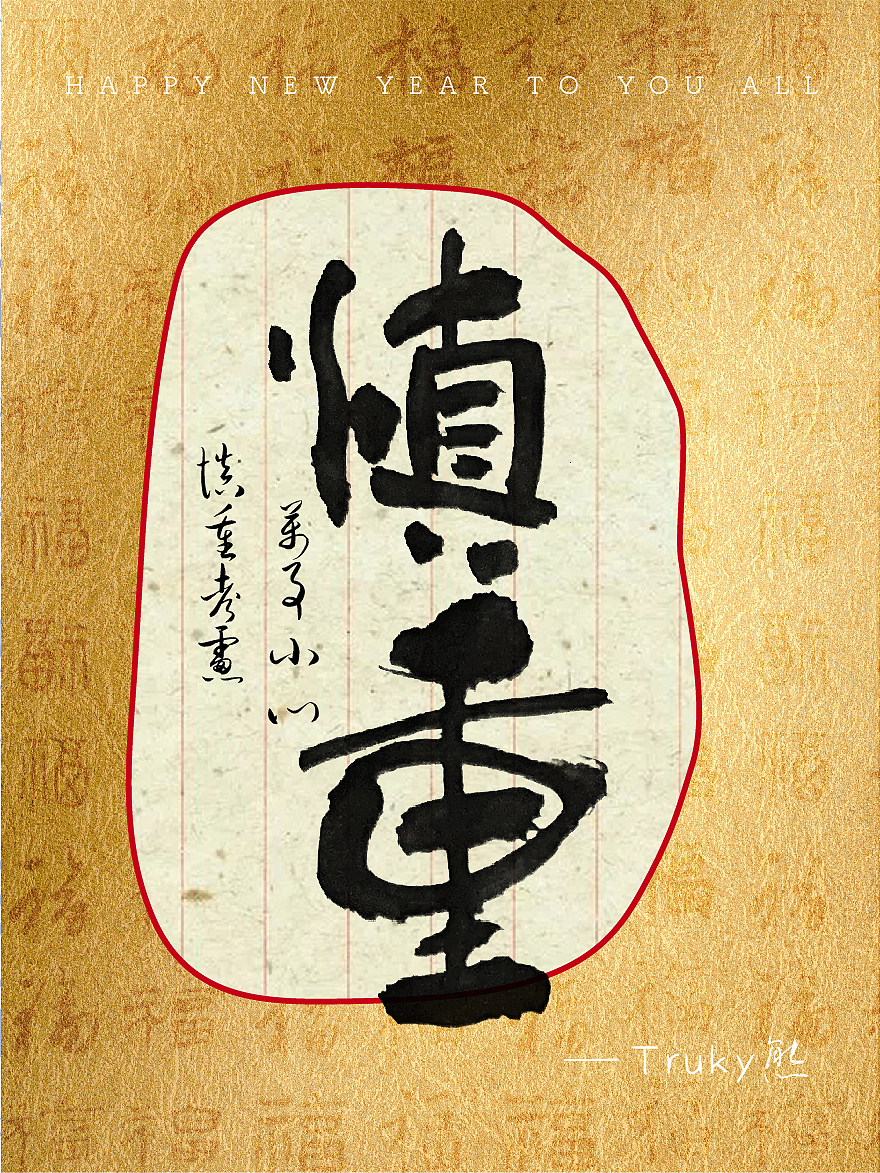 HAPPY NEW YEAR TO YOU ALL
慎重
萬事小心
慎重考慮
— Truky熊